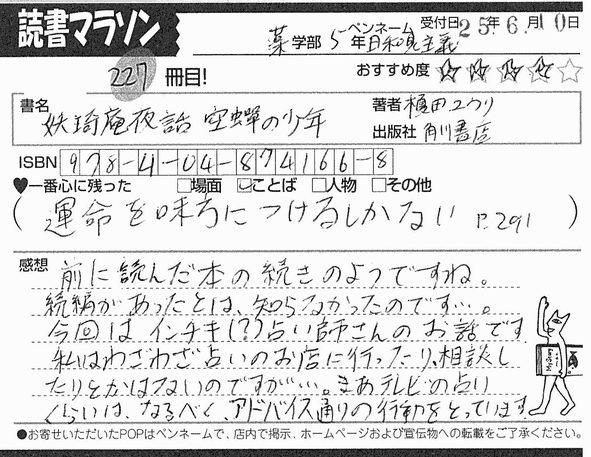 読書マラソン
受付日 25年6月10日
薬学部 5年 ペンネーム 日和見主義
227冊目!
おすすめ度 ★★★★☆
書名 妖琦庵夜話 空蝉の少年
著者名 榎田ユウリ
出版社 角川書店
ISBN 978-4-04-874166-8
♥一番心に残った □場面 ☑ことば □人物 □その他
(運命を味方につけるしかない P.291)
感想 前に読んだ本の続きのようですね。
続編があったとは、知らなかったのです…。
今回はインチキ(?)占い師さんのお話です
私はわざわざ占いのお店に行ったり、相談し
たりとかはないのですが…。まあテレビの占い
くらいは、なるべく、アドバイス通りの行動をとっています
●お寄せいただいたPOPはペンネームで、店内で掲示、ホームページおよび宣伝物への転載をご了承ください。